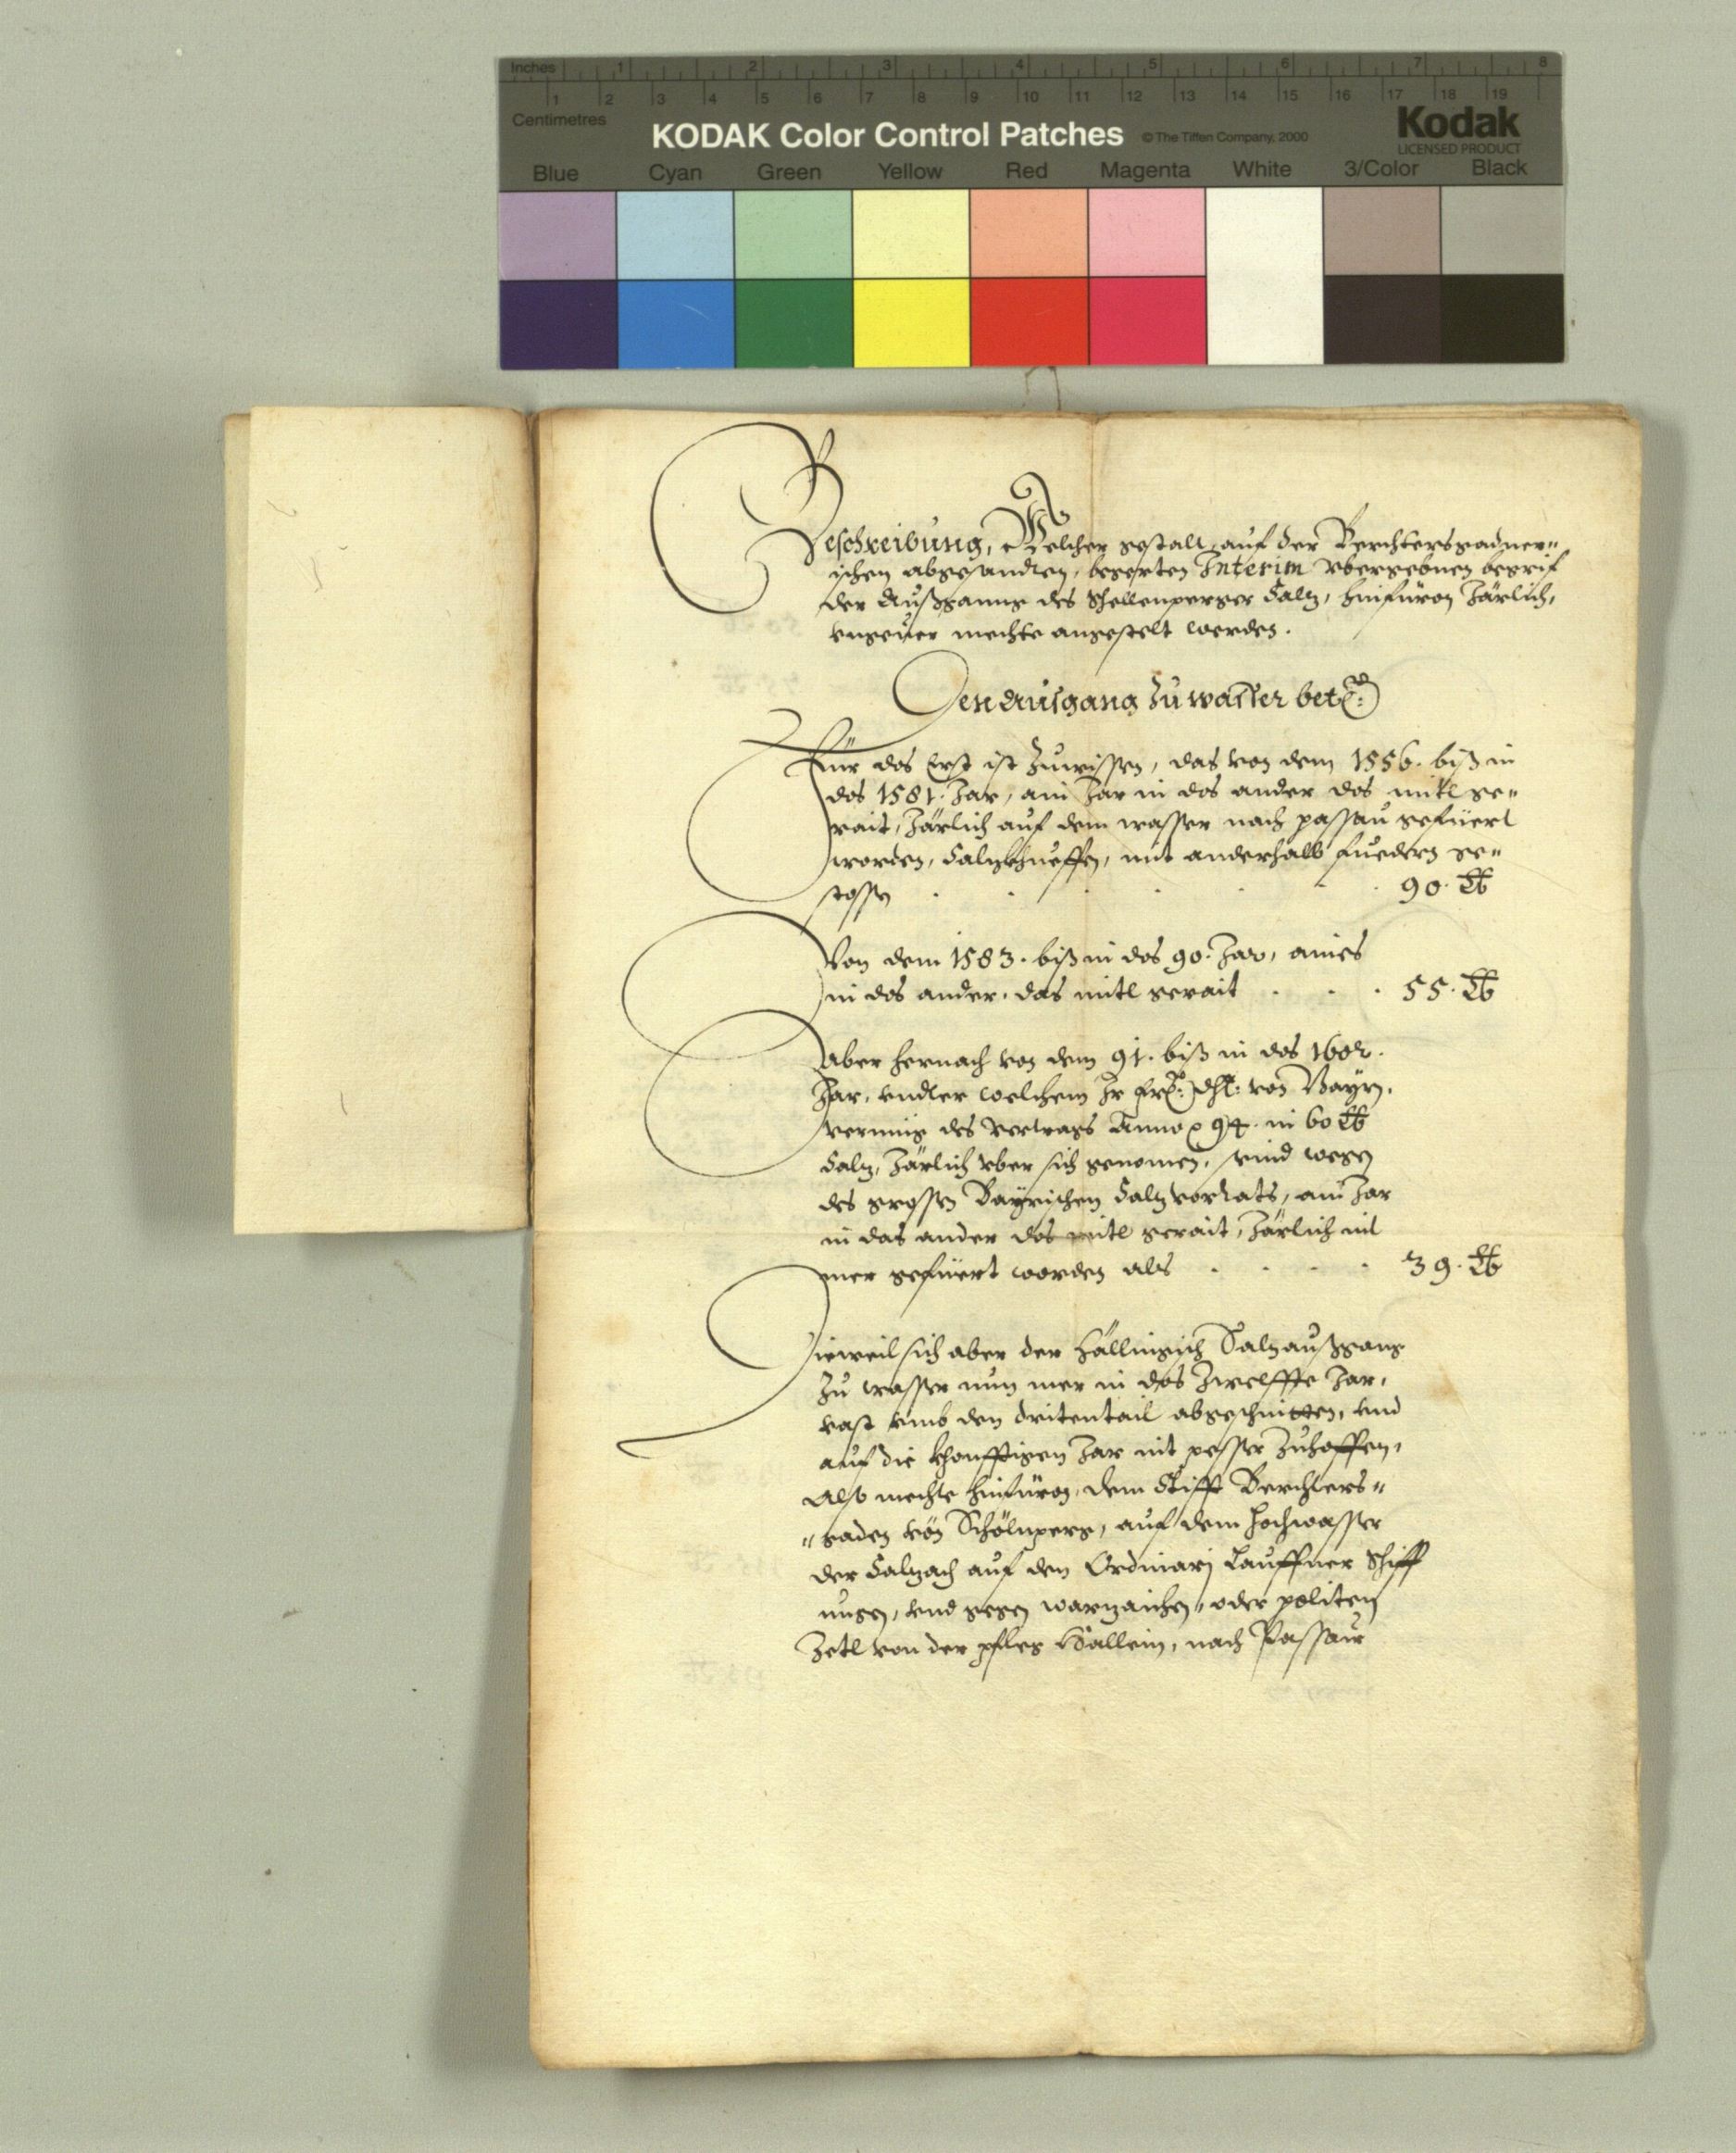 Inches 1 2 3 4 5 6 7 8
1 2 3 4 5 6 7 8 9 10 11 12 13 14 15 16 17 18 19
Centimetres
KODAK Color Control Patches © The Tiffen Company, 2000 Kodak
LICENSED PRODUCT
Blue Cyan Green Yellow Red Magenta White 3/Color Black
Beschreibung, Welcher gestalt, auf der Berchtersgadner„
ischen abgesandten, begerten Interim vbergebnen begrif
der Außganng des Schellenperger Salz, hinfüron Järlich,
vngeuer mechte angestelt werden.
Den Ausgang Zu wasser betr:
Für das Erst ist Zuwissen, das von dem 1556. biß in
das 1581. Jar, ain Jar in das ander das mitl ge„
rait, Järlich auf dem wasser nach passau gefüert
worden, Salzkhueffen, mit anderhalb fuedern ge„
stossen . . . . . . 90. ℔
Von dem 1583. biß in das 90. Jar, aines
in das ander, das mitl gerait . . . 55. ℔
Aber hernach von dem 91. biß in das 1602.
Jar, vndter welchem Ir frl: dht: von Bayrn,
vermüg des vertrags Anno 94. in 60 ℔
Salz, Järlich vber sich genomen, seind wegen
des grossen Bayrischen Salz vorrats, ain Jar
in das ander das mitl gerait, Järlich nit
mer gefüert worden als . . . . 39. ℔
Dieweil sich aber der Hällingisch Salzaußgang
Zu wasser nun mer in das Zwelffte Jar,
vast vmb den dritentail abgeschnitten, vnd
auf die khonfftigen Jar nit pesser Zuhoffen,
Also mechte hinfüron, dem Stifft Berchters„
„gaden von Schölnperg, auf dem hochwasser
der Salzach auf den Ordinarj Lauffner Schiff
ungen, vnd gegen warzaichen, oder politen
Zetl von der pfleg Hallein, nach Passaw